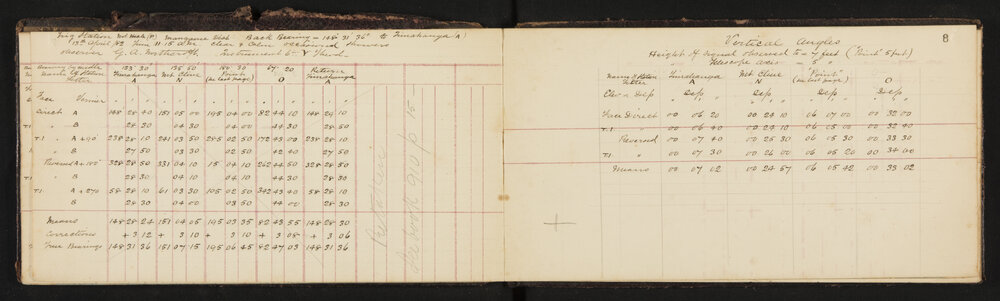 Trig Station Net Rock (N) Mangonui Dist Back Bearing = 148° 31' 36" to Tumahanga (A)
13th April 82 Time 11.15 a.m. clear & calm occasional showers
observer G. A. Northcroft, Instrument 6" Theod.
133 30 135 50 180 30 67 20 Return
Names of Station Tumahanga Net Cline "Point" Tumahanga
Letter A N (see last page) O A
Face Vernier
Direct A 148 28 40 151 05 00 195 04 00 82 44 10 148 29 10
" B 28 30 04 30 04 00 44 30 28 50
T.1. A +90° 238 28 10 241 03 50 285 02 50 172 43 00 238 28 10
" B 27 50 03 30 02 50 42 40 27 50
Reversed A +180° 328 28 50 331 04 10 15 04 10 262 44 50 328 28 50
" B 28 30 04 10 04 10 44 30 28 30
T.1. A +270 58 28 10 61 03 30 105 02 50 342 43 40 58 28 10
B 28 30 04 00 03 50 44 00 28 30
Means 148 28 24 151 04 05 195 03 35 82 43 55 148 28 30
Corrections + 3 12 + 3 10 + 3 10 + 3 08 + 3 06
True Bearings 148 31 36 151 07 15 195 06 45 82 47 03 148 31 36
8
Vertical Angles
Height of signal observed to = 7 feet ("Point" spot)
" Telescope axis = 5 "
Names of Station Tumahanga Net Cline "Point"
Letter A N (see last page) O
Elev or Dep Dep Dep Dep Dep
Face Direct 00 06 20 00 24 10 06 07 00 00 32 00
T.1 " 00 06 40 00 24 10 06 05 00 00 32 40
Reversed 00 07 40 00 25 30 06 05 30 00 33 30
T.1. " 00 07 30 00 26 00 06 05 20 00 34 00
Means 00 07 02 00 24 57 06 05 42 00 33 02